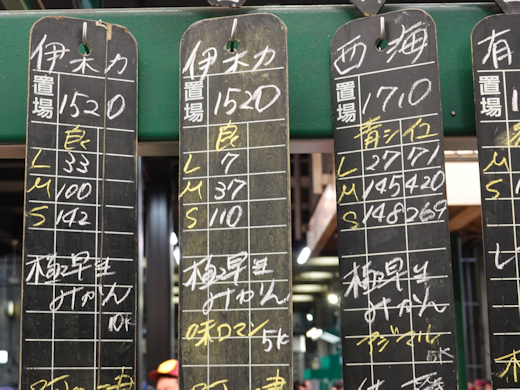 伊木力
置場 1520
良
L 33
M 100
S 142
極早生
みかん
10K
伊木力
置場 1520
良
L 7
M 37
S 110
極早生
みかん
味ロマン
5K
西海
置場 1710
青シ 仁
L 27 71
M 145 420
S 148 269
極早生
みかん
5K
有
置場
M
S